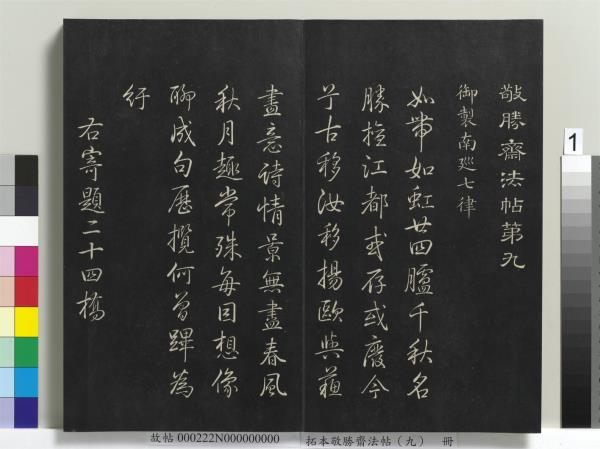 敬勝齋法帖第九
御製南廵七律
如帶如虹廿四臚千秋名
勝擅江都或存或廢今
于古移汝移揚歐與蘓
盡意詩情景無盡春風
秋月趣常殊每因想像
聊成句歷攬何曽蹕為
紆
右寄題二十四橋
1
故帖 000222N000000000
拓本敬勝齋法帖（九） 冊